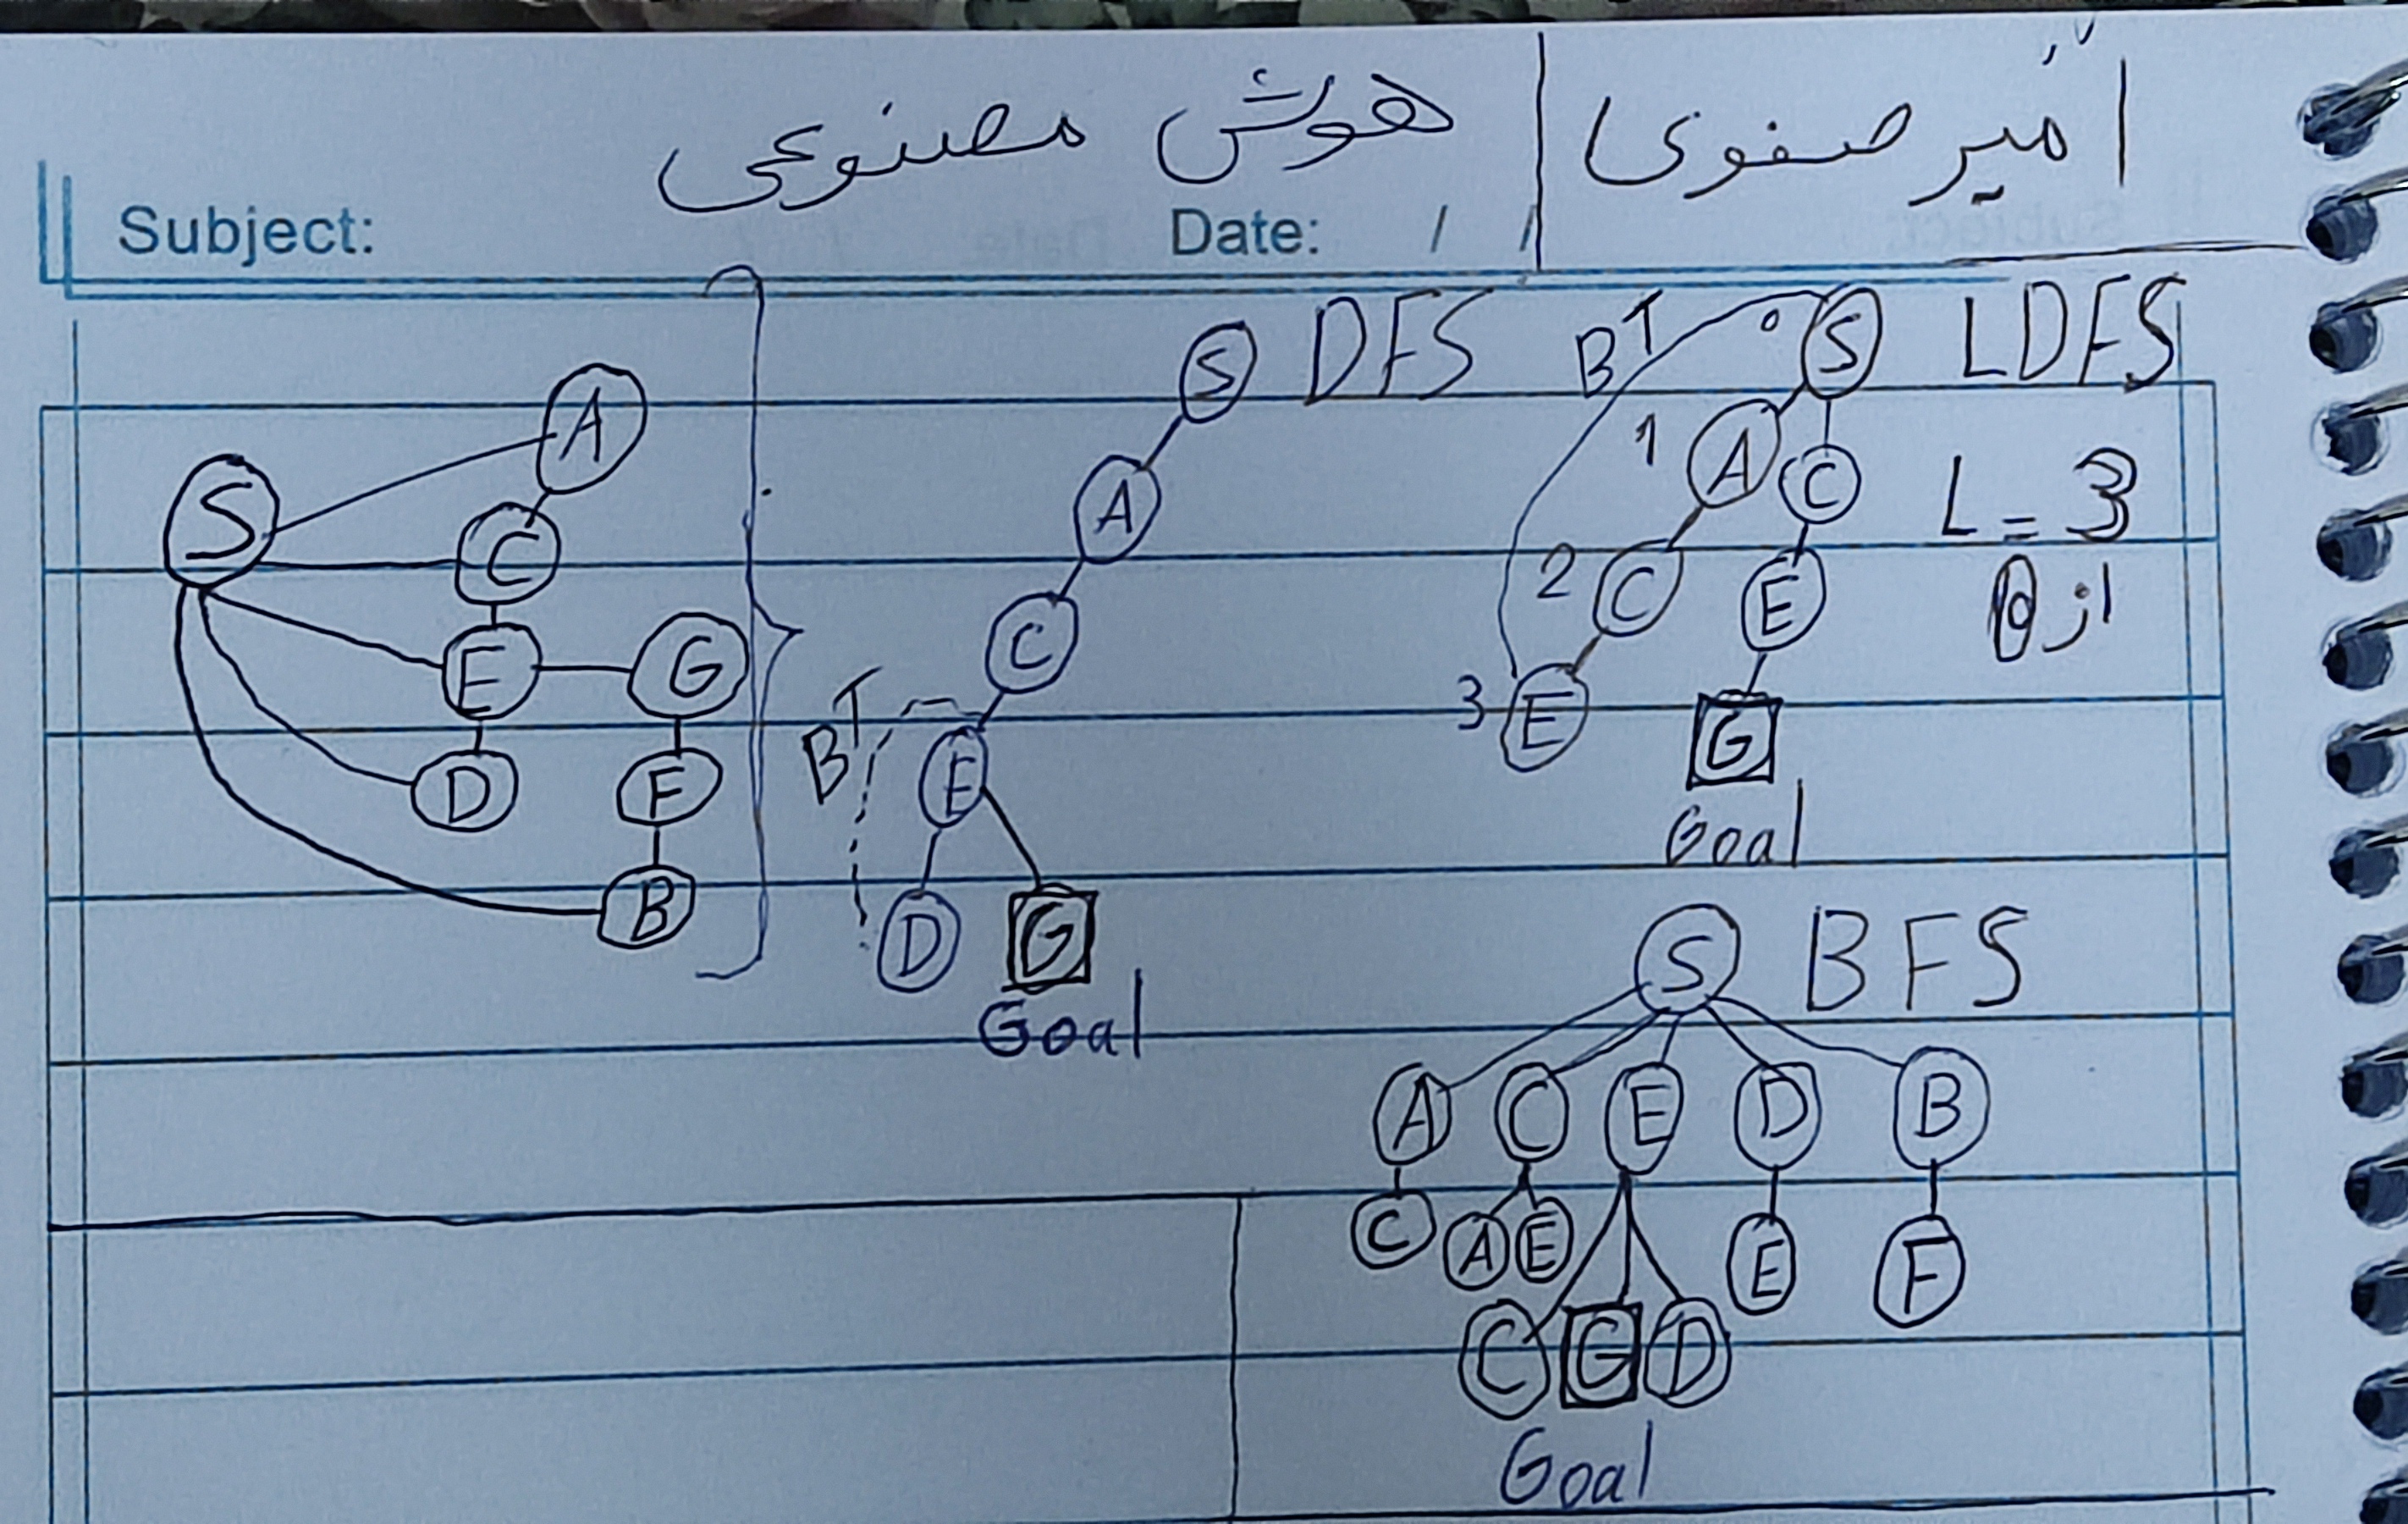 امیر صفوی
هوش مصنوعی
Subject:
Date: / /
S
A
C
E
G
D
F
B
DFS
S
A
C
BT
E
D
G
Goal
LDFS
BT
0
S
1
A
C
L = 3
از 0
2
C
E
3
E
G
Goal
BFS
S
A C E D B
C A E E F
C G D
Goal